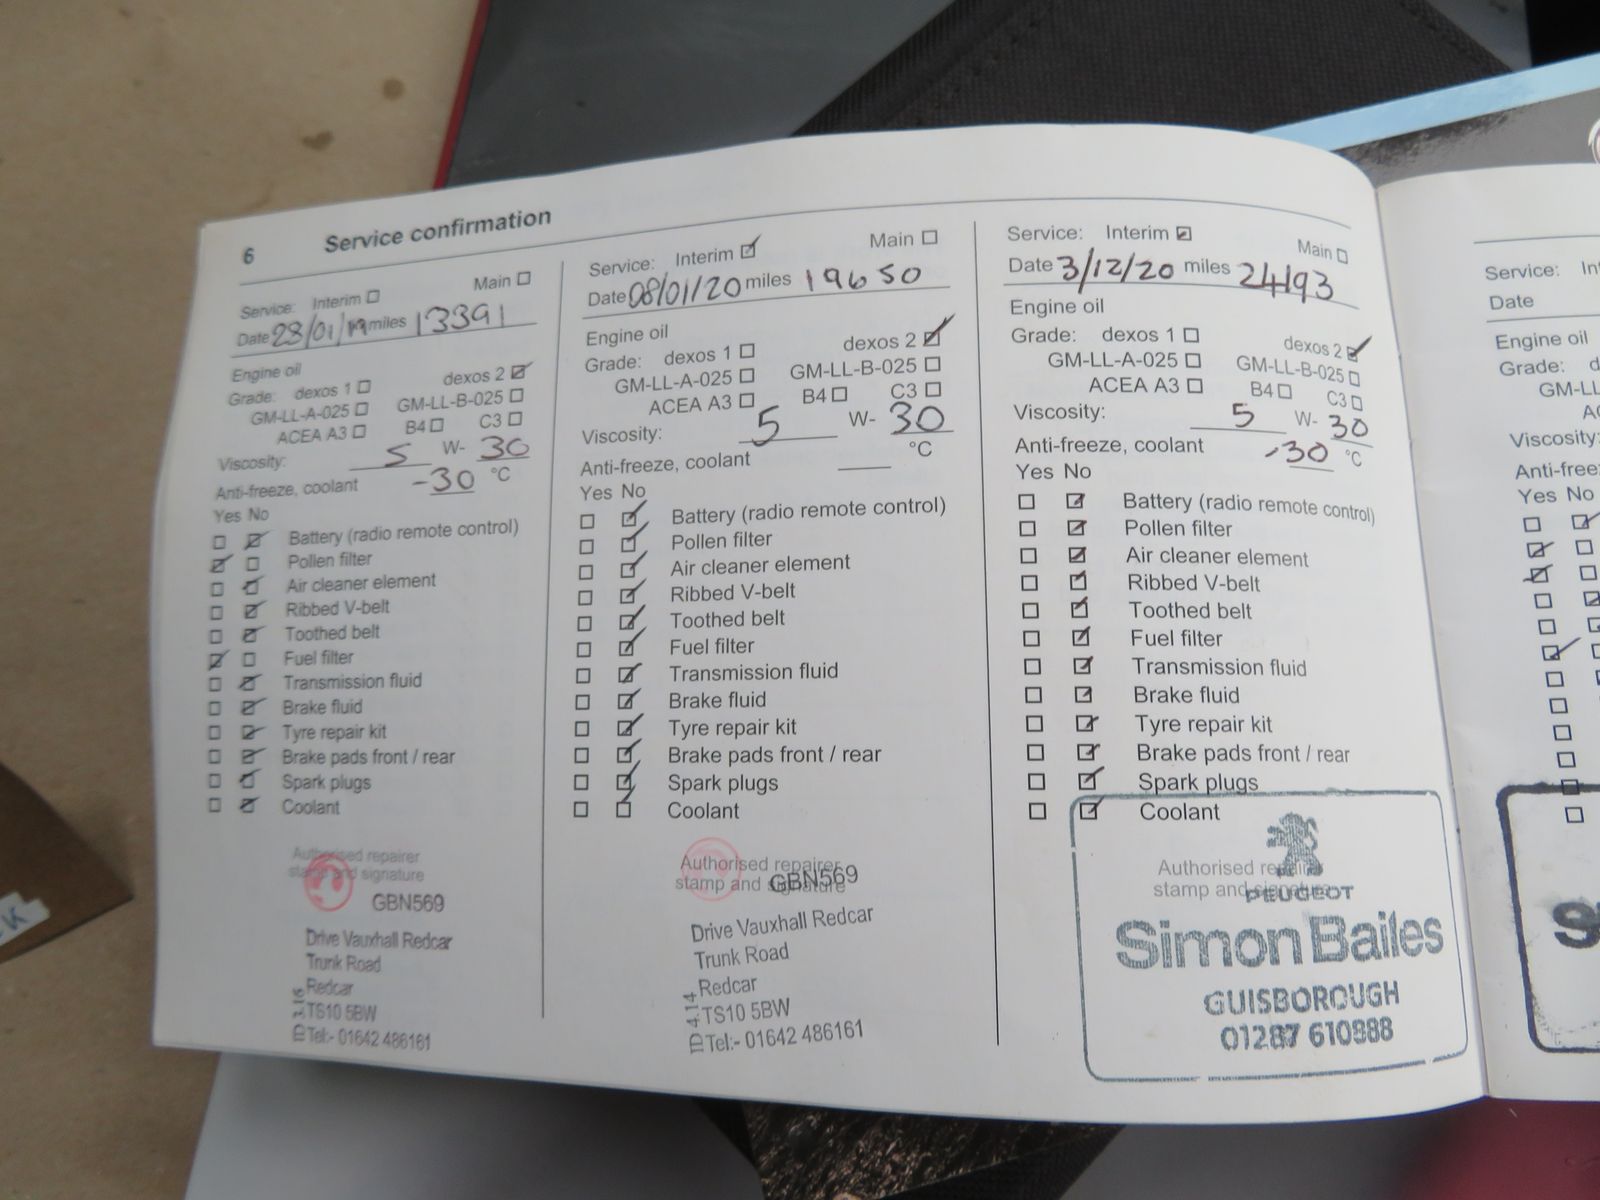 6 Service confirmation
Service: Interim Main
Date 28/01/19 miles 13391
Engine oil
Grade: dexos 1 dexos 2
GM-LL-A-025 GM-LL-B-025
ACEA A3 B4 C3
Viscosity: 5 W- 30
Anti-freeze, coolant -30 °C
Yes No
Battery (radio remote control)
Pollen filter
Air cleaner element
Ribbed V-belt
Toothed belt
Fuel filter
Transmission fluid
Brake fluid
Tyre repair kit
Brake pads front / rear
Spark plugs
Coolant
Authorised repairer
stamp and signature
GBN569
Drive Vauxhall Redcar
Trunk Road
Redcar
TS10 5BW
Tel:- 01642 486161
Service: Interim Main
Date 08/01/20 miles 19650
Engine oil
Grade: dexos 1 dexos 2
GM-LL-A-025 GM-LL-B-025
ACEA A3 B4 C3
Viscosity: 5 W- 30
Anti-freeze, coolant °C
Yes No
Battery (radio remote control)
Pollen filter
Air cleaner element
Ribbed V-belt
Toothed belt
Fuel filter
Transmission fluid
Brake fluid
Tyre repair kit
Brake pads front / rear
Spark plugs
Coolant
Authorised repairer
stamp and signature
GBN569
Drive Vauxhall Redcar
Trunk Road
Redcar
TS10 5BW
Tel:- 01642 486161
Service: Interim Main
Date 3/12/20 miles 24193
Engine oil
Grade: dexos 1 dexos 2
GM-LL-A-025 GM-LL-B-025
ACEA A3 B4 C3
Viscosity: 5 W- 30
Anti-freeze, coolant -30 °C
Yes No
Battery (radio remote control)
Pollen filter
Air cleaner element
Ribbed V-belt
Toothed belt
Fuel filter
Transmission fluid
Brake fluid
Tyre repair kit
Brake pads front / rear
Spark plugs
Coolant
Authorised repairer
stamp and signature
PEUGEOT
Simon Bailes
GUISBOROUGH
01287 610988
Service:
Date
Engine oil
Grade:
Viscosity:
Yes No